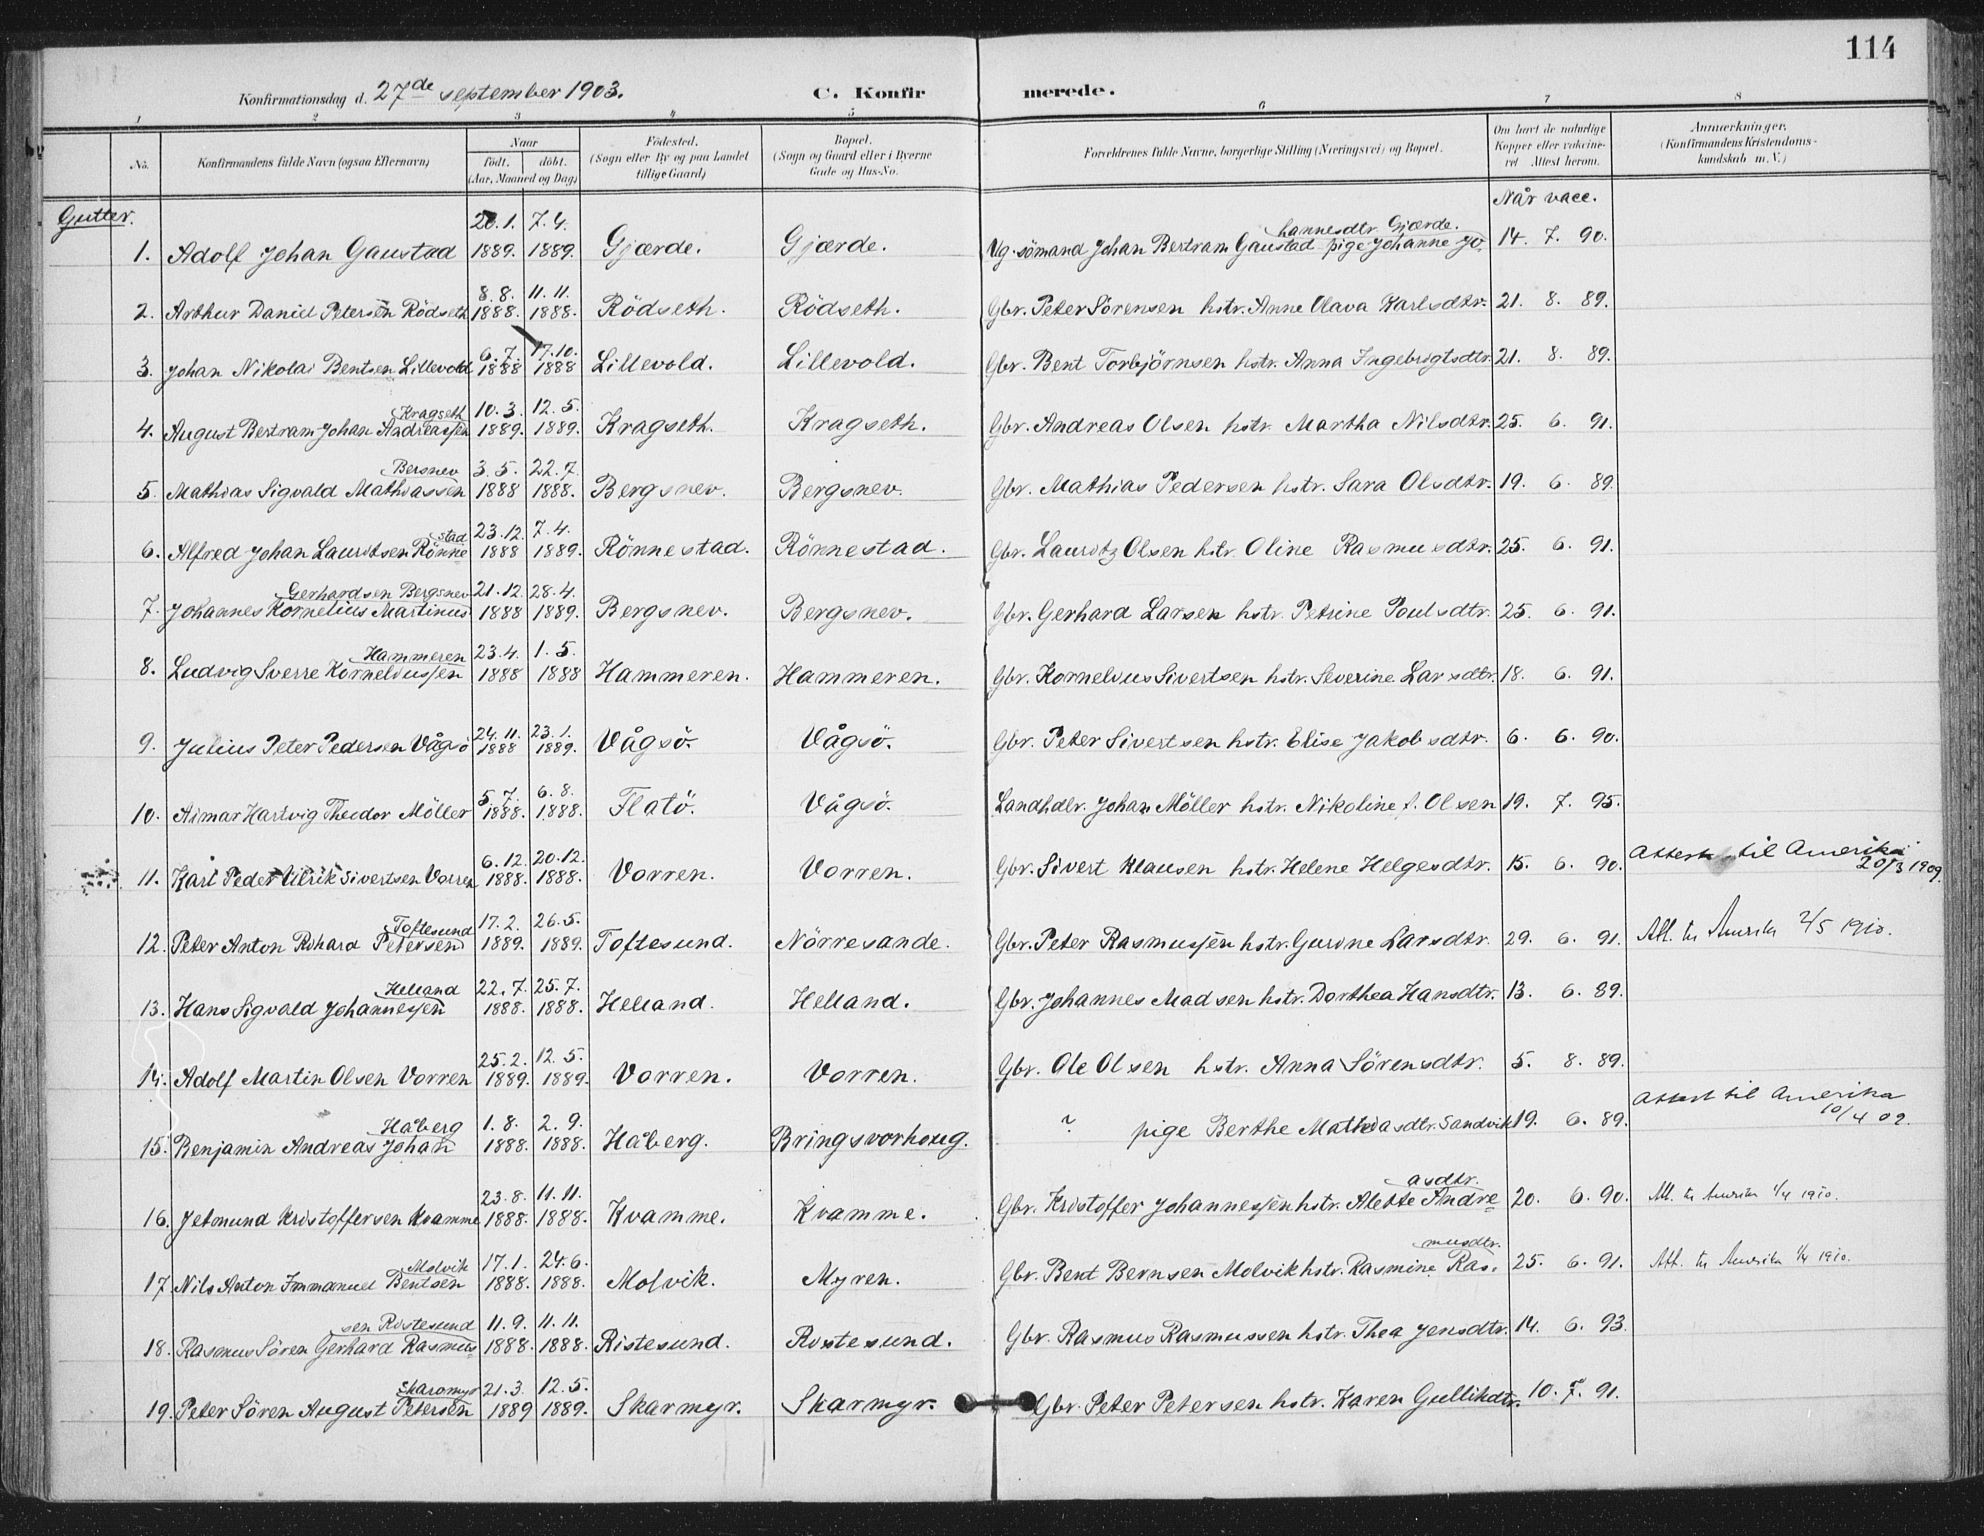 114
Konfirmationsdag d. 27de september 1903. C. Konfirmerede.
1 2 3 4 5 6 7 8
No. Konfirmandens fulde Navn (ogsaa Efternavn) Naar født. døbt. (Aar, Maaned og Dag) Fødested. (Sogn eller By og paa Landet tillige Gaard) Bopæl. (Sogn og Gaard eller i Byerne Gade og Hus-No. Forældrenes fulde Navne, borgerlige Stilling (Næringsvei) og Bopæl. Om havt de naturlige Kopper eller vakcineret Attest herom. Anmærkninger. (Konfirmandens Kristendomskundskab m. V.)
Når vacc.
Gutter.
1. Adolf Johan Gaustad 20.1. 1889. 7.4. 1889. Gjærde. Gjærde. Ug. sömand Johan Bertram Gaustad pige Johanne Johannesdtr Gjærde. 14. 7. 90.
2. Arthur Daniel Petersen Rödseth 8.8. 1888. 11.11. 1888. Rödseth. Rödseth. Gbr. Peter Sörensen hstr. Anne Olava Karlsdtr. 21. 8. 89.
3. Johan Nikolai Bentsen Lillevold 6.7. 1888 17.10. 1888 Lillevold. Lillevold. Gbr. Bent Torbjörnsen hstr. Anna Ingebrigtsdtr. 21. 8. 89.
4. August Bertram Johan Andreassen Kragseth 10.3. 1889. 12.5. 1889. Kragseth. Kragseth. Gbr. Andreas Olsen hstr. Martha Nilsdtr. 25. 6. 91.
5. Mathias Sigvald Mathiassen Bersnev 3.5. 1888 22.7. 1888. Bergsnev. Bergsnev. Gbr. Mathias Pedersen hstr. Sara Olsdtr. 19. 6. 89.
6. Alfred Johan Lauritsen Rönnestad 23.12. 1888 7.4. 1889. Rönnestad. Rönnestad. Gbr. Lauritz Olsen hstr. Oline Rasmusdtr. 25. 6. 91.
7. Johannes Kornelius Martinus Gerhardsen Bergsnev 21.12. 1888 28.4. 1889. Bergsnev. Bergsnev. Gbr. Gerhard Larsen hstr. Petrine Poulsdtr. 25. 6. 91.
8. Ludvig Sverre Korneliussen Hammeren 23.4. 1888 1.5. 1888 Hammeren. Hammeren. Gbr. Kornelius Sivertsen hstr. Severine Larsdtr. 18. 6. 91.
9. Julius Peter Pedersen Vågsö 24.11. 1888 23.1. 1889. Vågsö. Vågsö. Gbr. Peter Sivertsen hstr. Elise Jakobsdtr. 6. 6. 90.
10. Aimar Hartvig Theodor Möller 5.7. 1888. 6.8. 1888. Flatö. Vågsö. Landhdlr. Johan Möller hstr. Nikoline f. Olsen 19. 7. 95.
11. Karl Peder Ulrik Sivertsen Vorren 6.12. 1888. 20.12. 1888. Vorren. Vorren. Gbr. Sivert Klausen hstr. Helene Helgesdtr. 15. 6. 90. Attest til Amerika 20/3 1909.
12. Peter Anton Rihard Petersen Toftesund 17.2. 1889. 26.5. 1889. Toftesund. Nörresande. Gbr. Peter Rasmussen hstr. Gurine Larsdtr. 29. 6. 91. Att. til Amerika 2/5 1910.
13. Hans Sigvald Johannessen Helland 22.7. 1888. 25.7. 1888. Helland. Helland. Gbr. Johannes Madsen hstr. Dorthea Hansdtr. 13. 6. 89.
14. Adolf Martin Olsen Vorren 25.2. 1889. 12.5. 1889. Vorren. Vorren. Gbr. Ole Olsen hstr. Anna Sörensdtr. 5. 8. 89.
15. Benjamin Andreas Johan Håberg 1.8. 1888. 2.9. 1888. Håberg. Bringsvorhoug. ? pige Berthe Mathiasdtr. Sandvik 19. 6. 89. Attest til Amerika 10/4 02.
16. Jetmund Kristoffersen Kvamme 23.8. 1888. 11.11. 1888. Kvamme. Kvamme. Gbr. Kristoffer Johannessen hstr. Alette Andreasdtr. 20. 6. 90. Att. til Amerika 1/4 1910.
17. Nils Anton Immanuel Bentsen Molvik 17.1. 1888. 24.6. 1888. Molvik. Myren. Gbr. Bent Bernsen Molvik hstr. Rasmine Rasmusdtr. 25. 6. 91. Att. til Amerika 1/4 1910.
18. Rasmus Sören Gerhard Rasmussen Ristesund 11.9. 1888. 11.11. 1888. Ristesund. Ristesund. Gbr. Rasmus Rasmussen hstr. Thea Jensdtr. 14. 6. 93.
19. Peter Sören August Petersen Skarmyr 21.3. 1889 12.5. 1889. Skarmyr. Skarmyr. Gbr. Peter Petersen hstr. Karen Gullikdtr. 10. 7. 91.